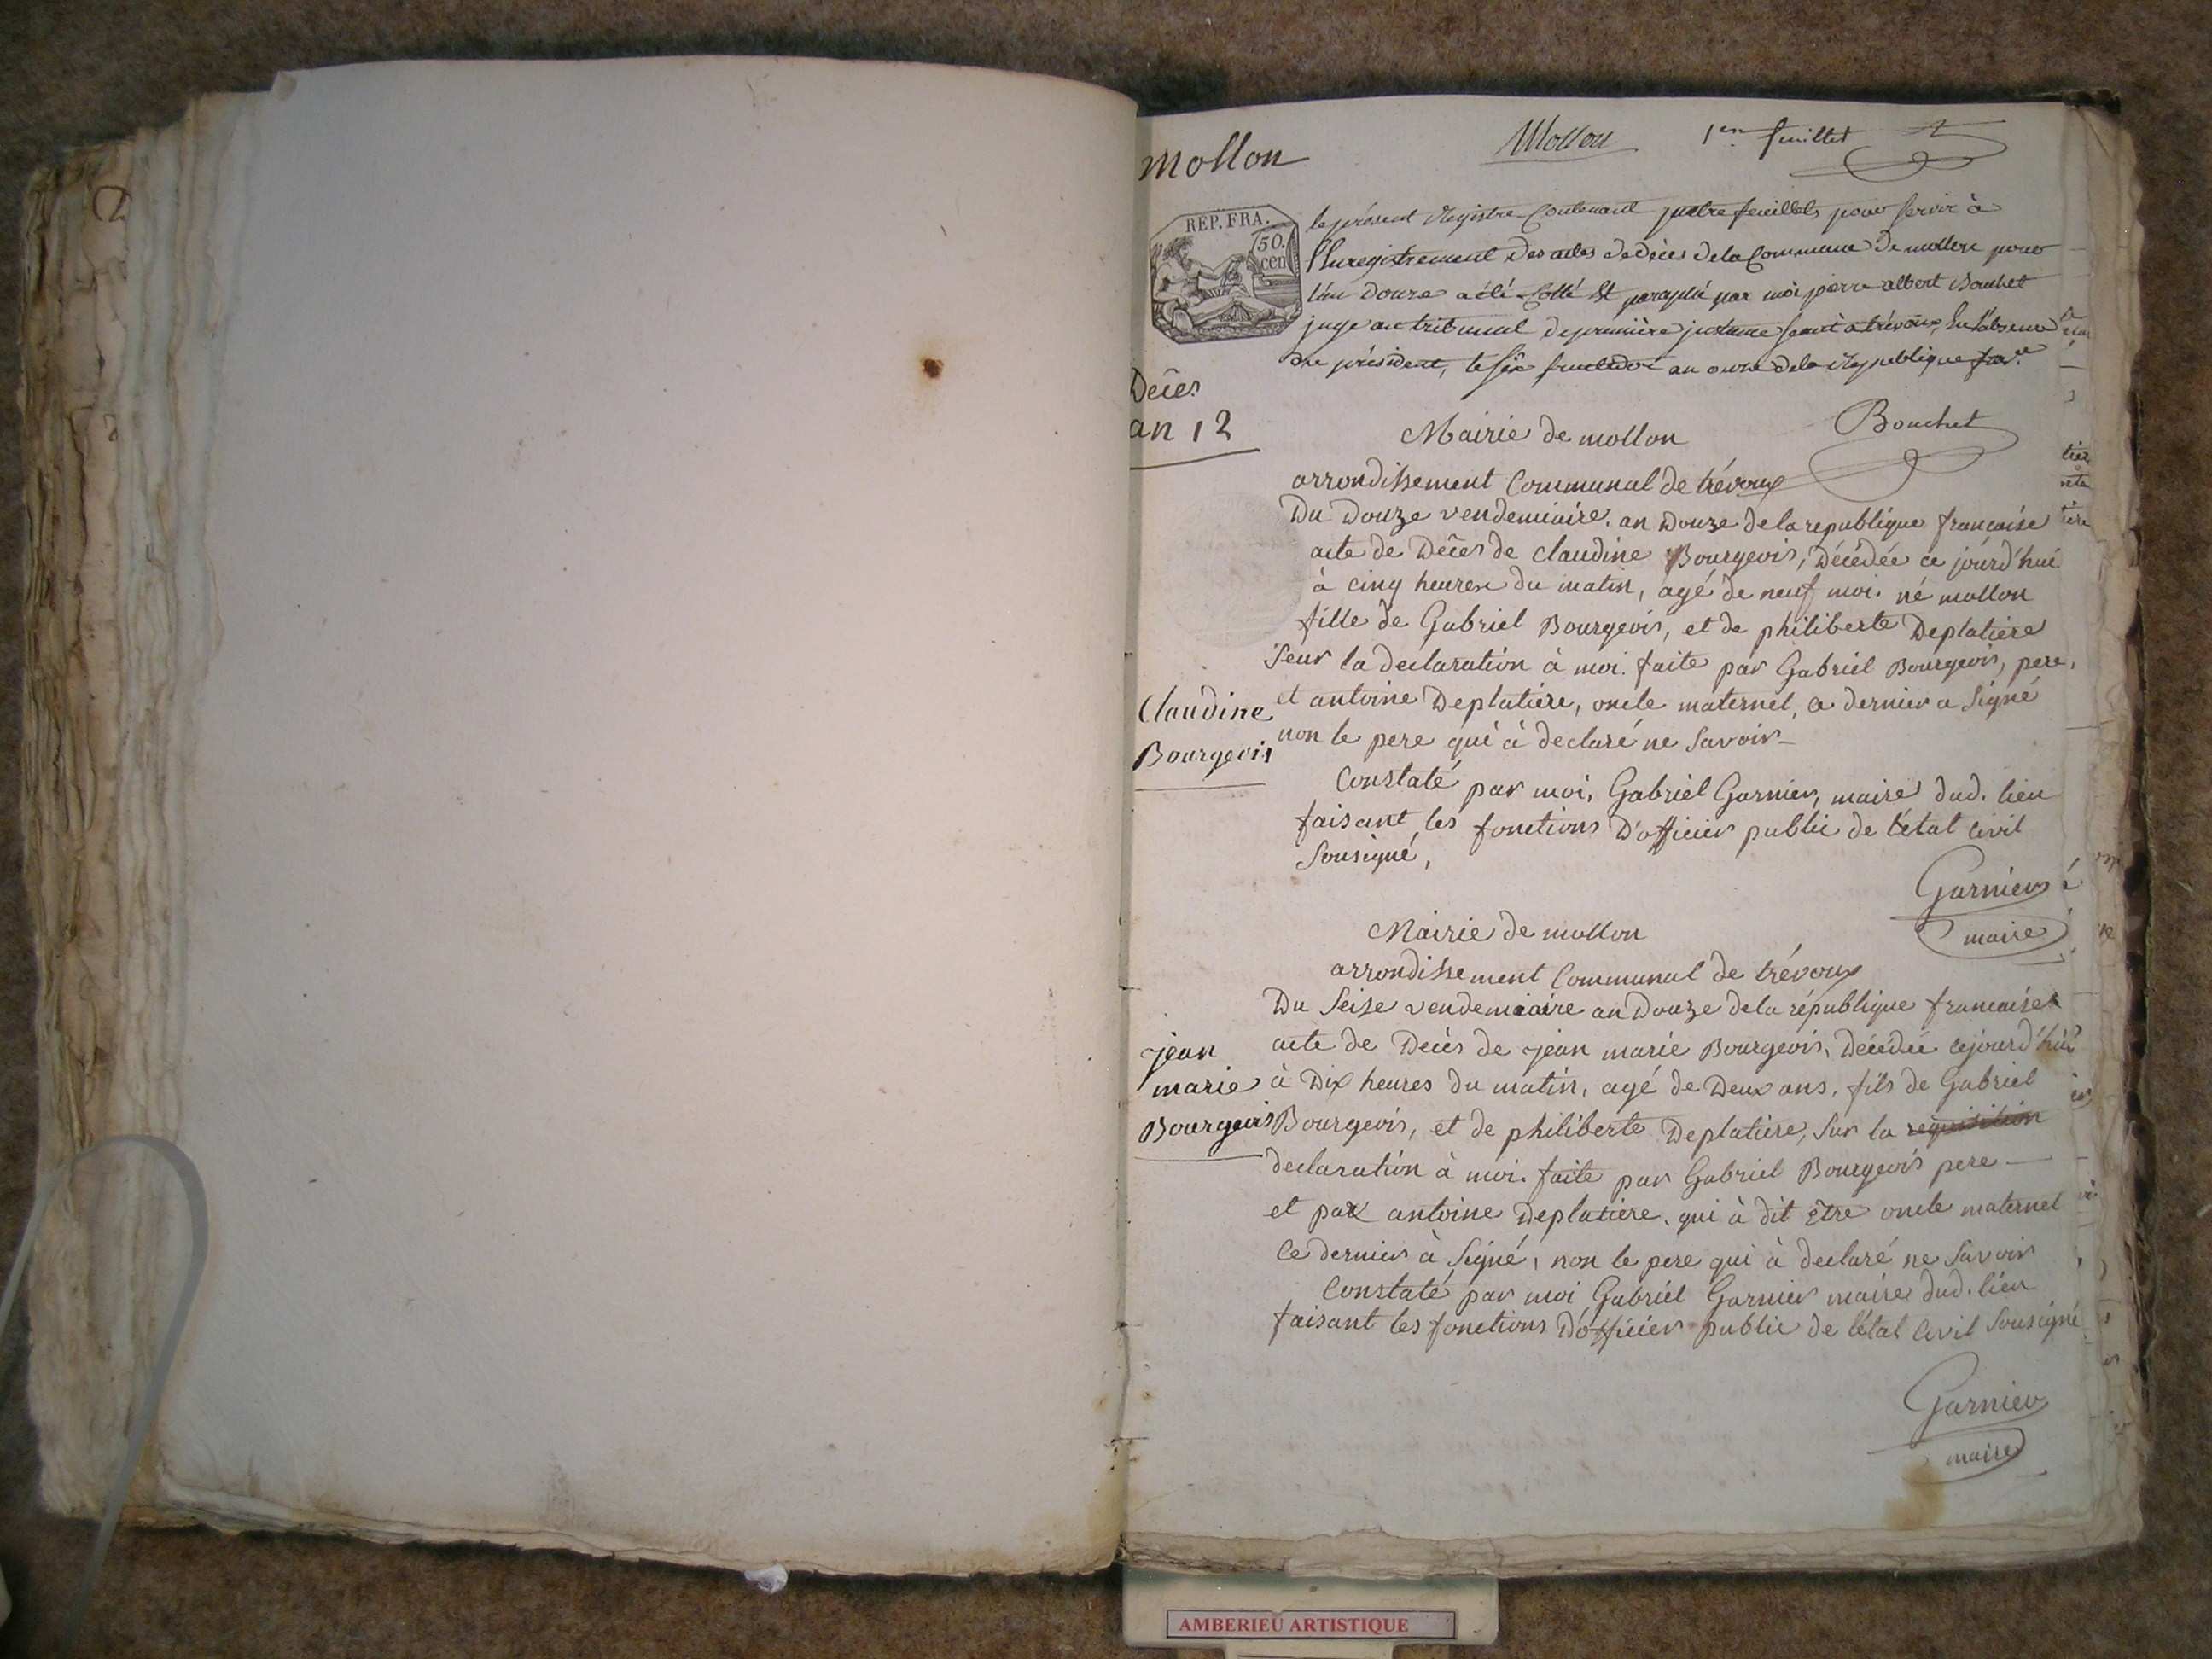 mollon
Mollon 1er feuillet
REP. FRA.
50.
cen
le présent Registre Contenant quatre feuillets pour servir à
l'Enregistrement des actes de décès de la Commune de mollon pour
l'an Douze a été Cotté Et paraphé par moi pierre albert Bouchet
juge au tribunal de première instance séant à trévoux, En l'absence
du président, le six fructidor an onze de la République fra.se
Bouchet
Deces
an 12
Mairie de mollon
arrondissement Communal de trévoux
Du Douze vendemiaire. an Douze de la republique francaise
acte de Deces de Claudine Bourgeois, décédée ce jourd'hui
à cinq heures du matin, agé de neuf moi. né mollon
fille de Gabriel Bourgeois, et de philiberte Deplatiere
Seur la declaration à moi. faite par Gabriel Bourgeois, pere,
et antoine Deplatiere, oncle maternel, ce dernier a Signé
non le pere qui à declaré ne Savoir
Claudine
Bourgeois
Constaté par moi, Gabriel Garnier, maire dud. lieu
faisant les fonctions D'officier public de l'état Civil
Sousigné,
Garnier
maire
Mairie de mollon
arrondissement Communal de trévoux
Du Seize vendemiaire an Douze de la république francaise
acte de Décès de jean marie Bourgeois, Décédée cejourd'hui
à Dix heures du matin, agé de Deux ans, fils de Gabriel
Bourgeois, et de philiberte Deplatiere, Sur la requisition
declaration à moi. faite par Gabriel Bourgeois pere
et par antoine Deplatiere. qui à dit Etre oncle maternel
Ce dernier à Signé, non le pere qui à declaré ne Savoir
jean
marie
Bourgeois
Constaté par moi Gabriel Garnier maire dud. lieu
faisant les fonctions D'officier public de l'état Civil Sousigné
Garnier
maire
AMBERIEU ARTISTIQUE